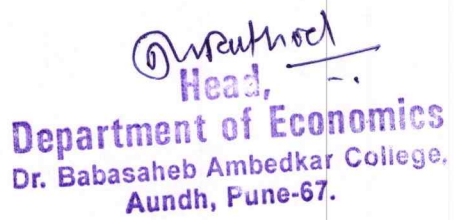 Head,
Department of Economics
Dr. Babasaheb Ambedkar College.
Aundh, Pune-67.